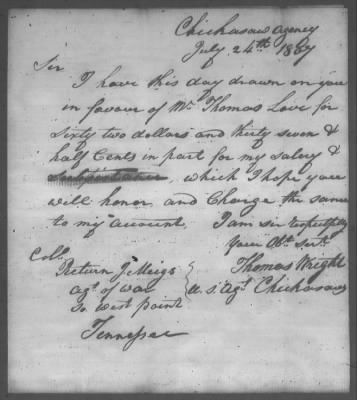 Chickasaw Agency
July 24th 1807
Sir
I have this day drawn on you
in favour of Mr Thomas Love for
Sixty two dollars and thirty seven &
half Cents in part for my salery &
which I hope you
will honor, and Charge the same
to my account, I am sir respectfully
Your Obt Servt
Thomas Wright
U. S. Agt Chickasaws
Colo.
Return J. Meigs
Agt of War
So West point
Tennessee